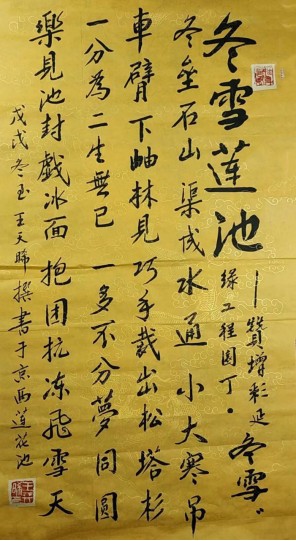 冬雪莲池
——贊增彩延冬雪〞
绿工程园丁·
冬垒石山渠成水通小大寒吊
車臂下岫林見巧手裁出松塔杉
一分為二生無已一多不分夢同圆
樂見池封戲冰面抱团抗冻飛雪天
戊戌冬玉王天晞撰書于京西莲花池